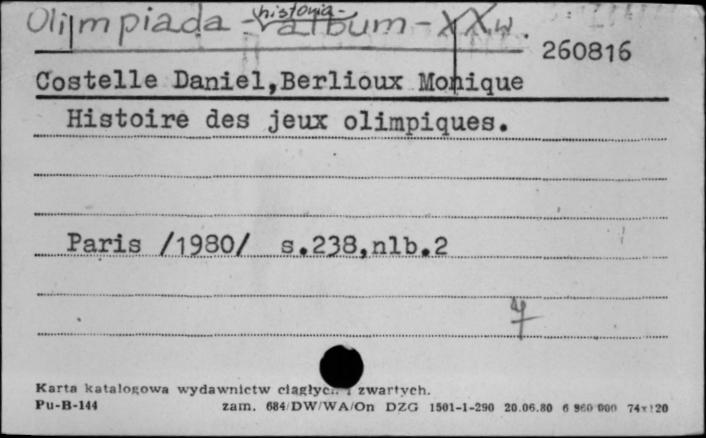 Olimpiada - historia - album - XX w.
260816
Costelle Daniel,Berlioux Monique
Histoire des jeux olimpiques.
Paris /1980/ s.238,nlb.2
Karta katalogowa wydawnictw ciągłyc i zwartych.
Pu-B-144 zam. 684/DW/WA/On DZG 1501-1-290 20.06.80 6 960 000 74x120